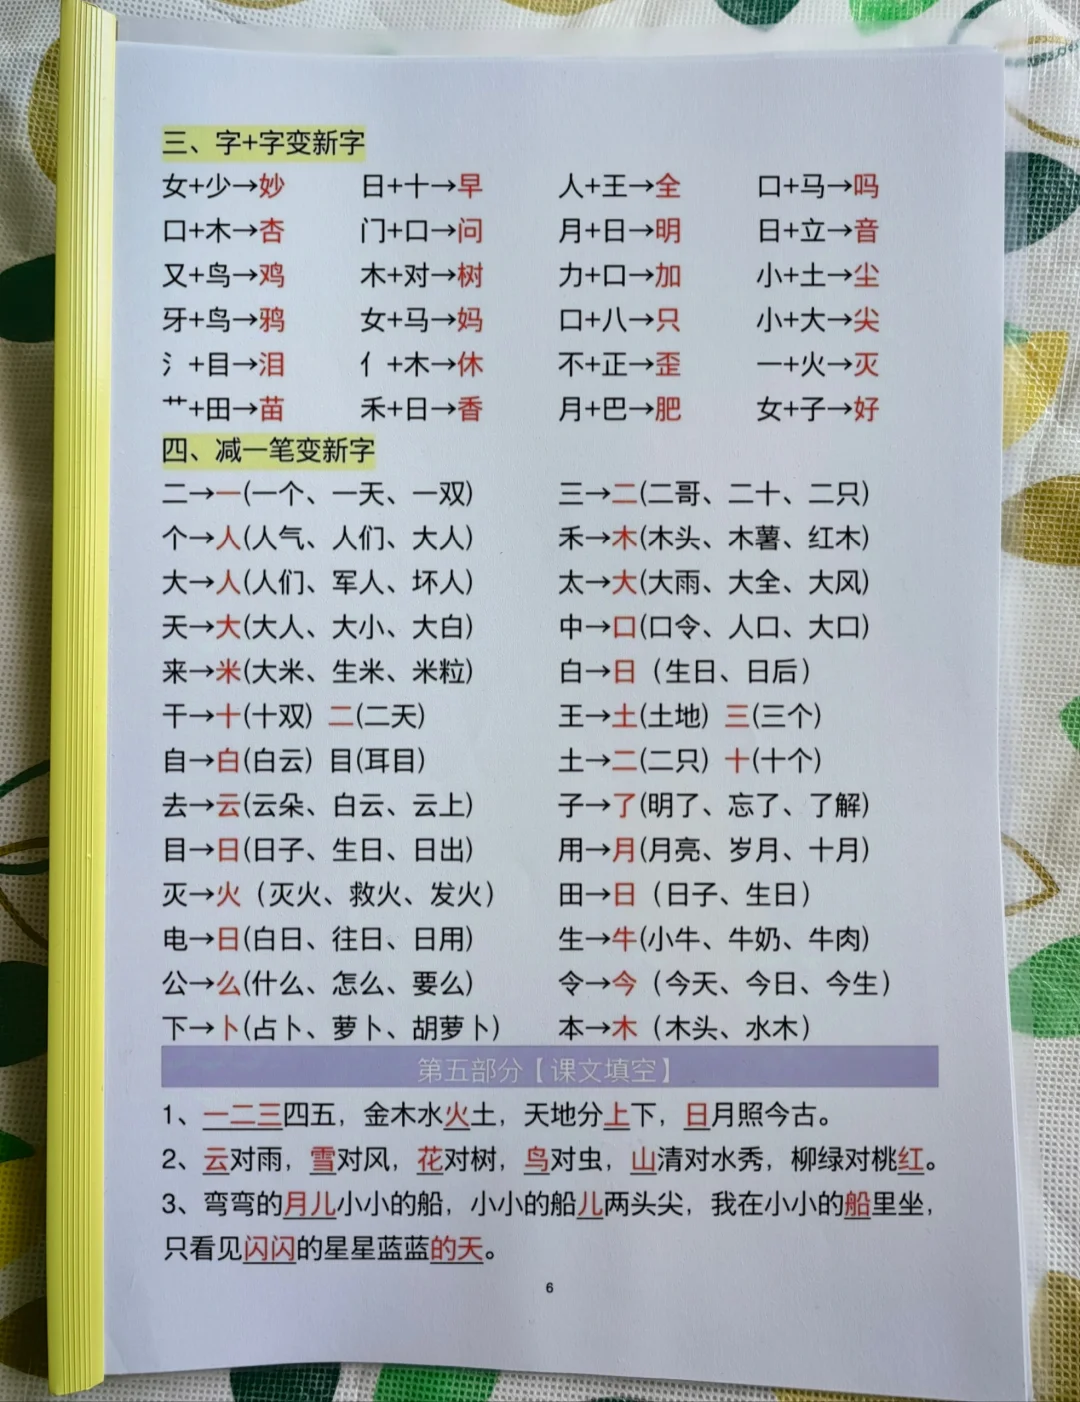 三、字+字变新字
女+少→妙 日+十→早 人+王→全 口+马→吗
口+木→杏 门+口→问 月+日→明 日+立→音
又+鸟→鸡 木+对→树 力+口→加 小+土→尘
牙+鸟→鸦 女+马→妈 口+八→只 小+大→尖
氵+目→泪 亻+木→休 不+正→歪 一+火→灭
艹+田→苗 禾+日→香 月+巴→肥 女+子→好
四、减一笔变新字
二→一(一个、一天、一双) 三→二(二哥、二十、二只)
个→人(人气、人们、大人) 禾→木(木头、木薯、红木)
大→人(人们、军人、坏人) 太→大(大雨、大全、大风)
天→大(大人、大小、大白) 中→口(口令、人口、大口)
来→米(大米、生米、米粒) 白→日（生日、日后）
干→十(十双) 二(二天) 王→土(土地) 三(三个)
自→白(白云) 目(耳目) 土→二(二只) 十(十个)
去→云(云朵、白云、云上) 子→了(明了、忘了、了解)
目→日(日子、生日、日出) 用→月(月亮、岁月、十月)
灭→火（灭火、救火、发火） 田→日（日子、生日）
电→日(白日、往日、日用) 生→牛(小牛、牛奶、牛肉)
公→么(什么、怎么、要么) 令→今（今天、今日、今生）
下→卜(占卜、萝卜、胡萝卜) 本→木（木头、水木）
第五部分【课文填空】
1、一二三四五，金木水火土，天地分上下，日月照今古。
2、云对雨，雪对风，花对树，鸟对虫，山清对水秀，柳绿对桃红。
3、弯弯的月儿小小的船，小小的船儿两头尖，我在小小的船里坐，
只看见闪闪的星星蓝蓝的天。
6